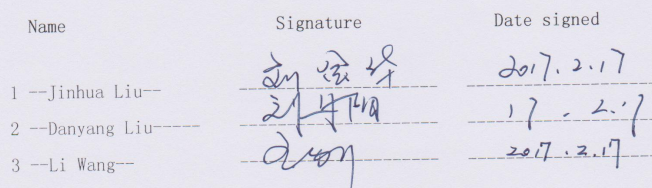 Name Signature Date signed
1 --Jinhua Liu-- 刘金华 2017.2.17
2 --Danyang Liu----- 刘丹阳 17.2.17
3 --Li Wang-- 2017.2.17